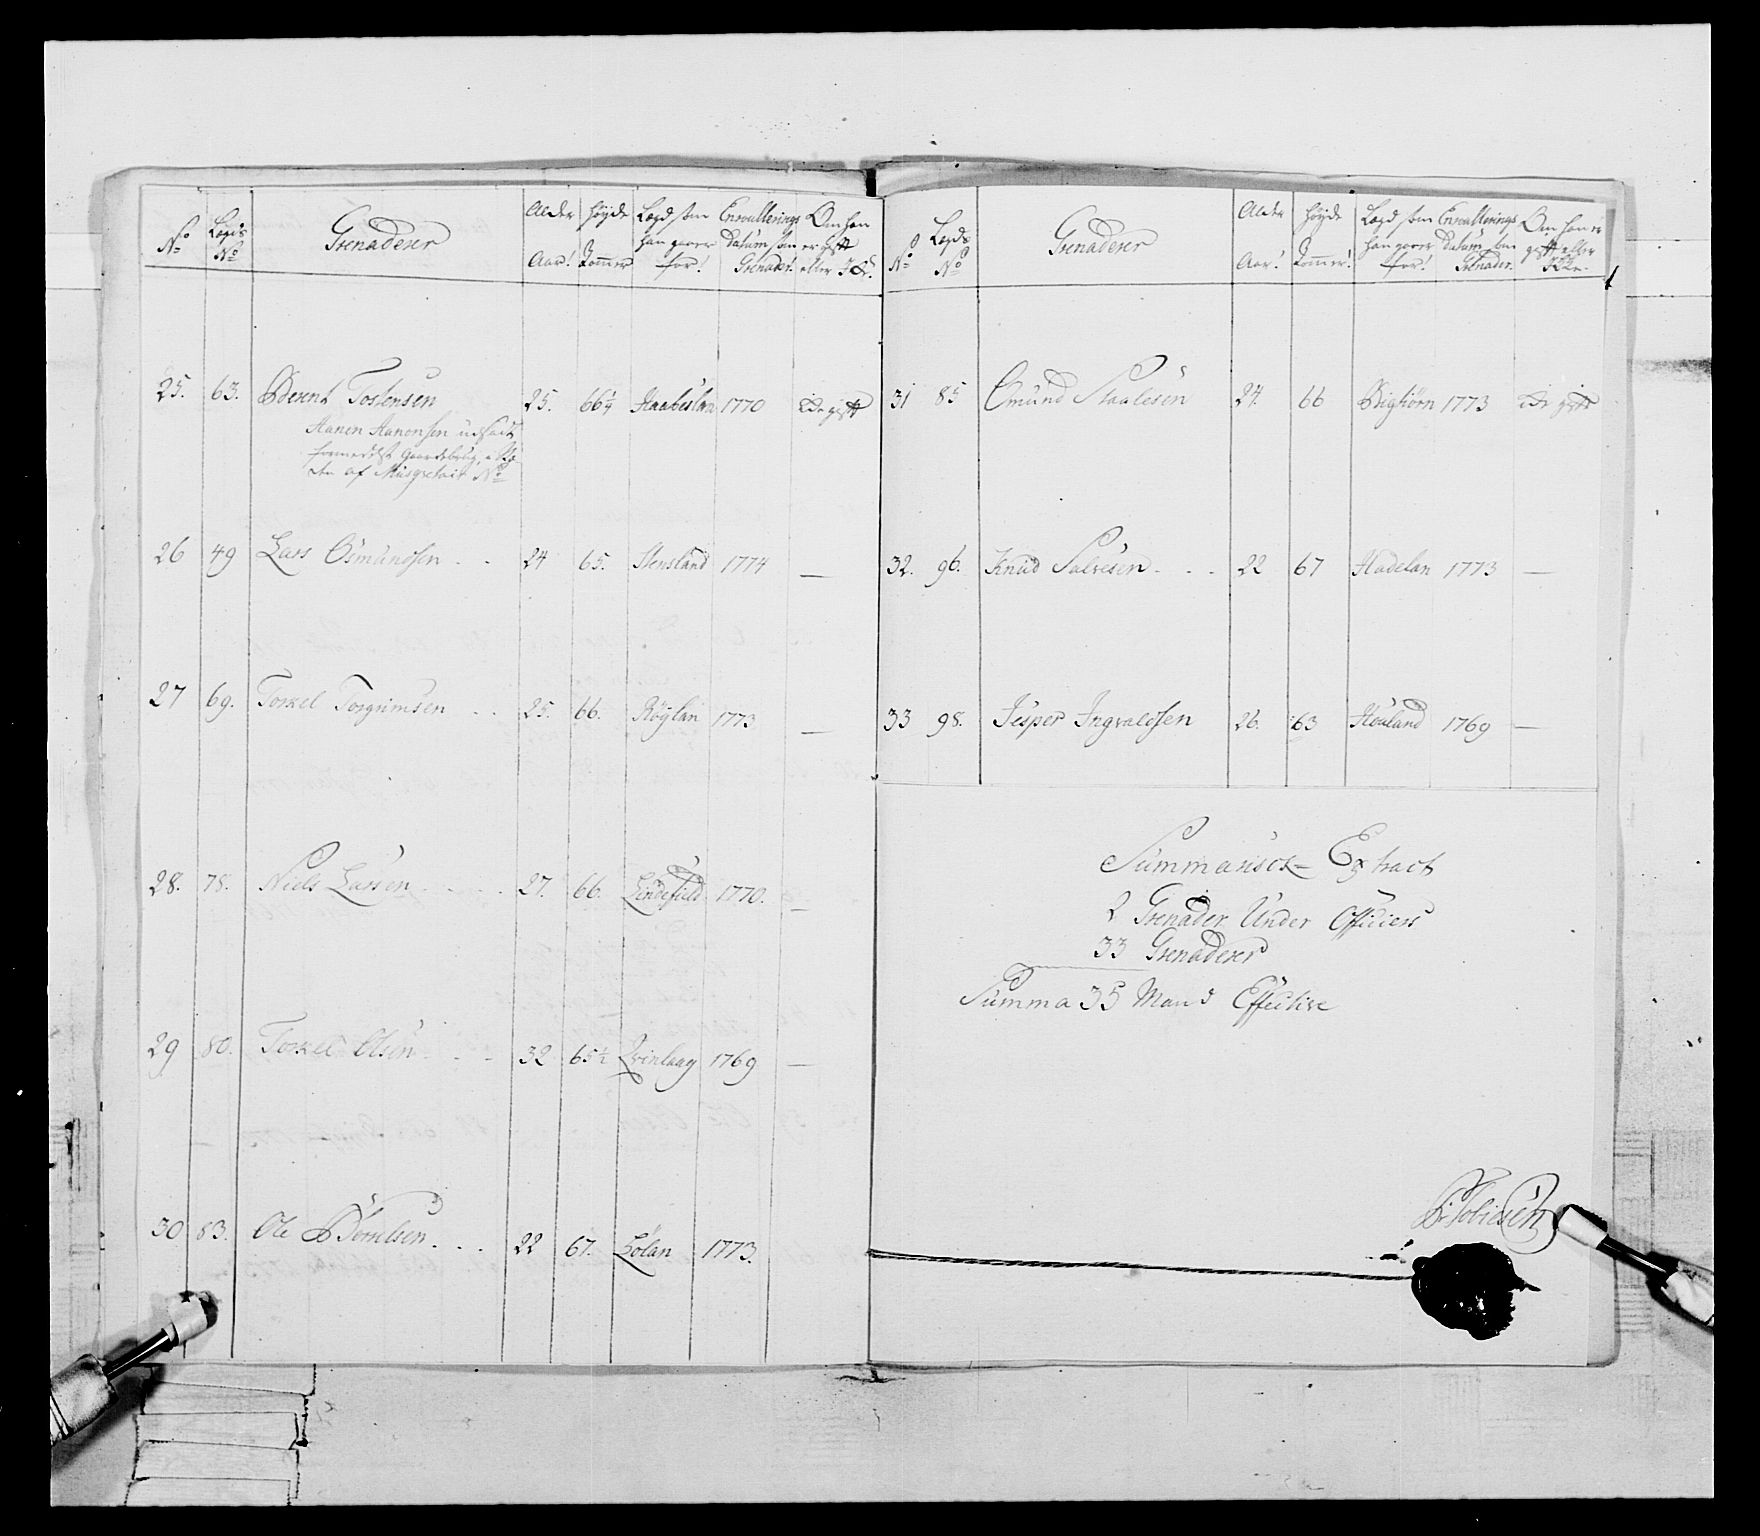 No Legds No Grenaderer Alder Aar! Høyde Tommer Legd som han gaaer for! Enroullerings Datum som Grenader! Om han er gift eller Ikke.
25. 63. Berent Tostensen 25. 66 1/4 Haabeslan 1770 Ikke gift
Hanen Hanensen udsadt
formedelst Gaardebrug,
af No
26 49 Lars Osmundsen 24 65. Stensland 1774 —
27 69. Torkel Torgrimsen 25. 66. Røyslan 1773 —
28. 78. Niels Larsen 27. 66. Lindefield 1770. —
29 80. Torkel Olsen 32 65 1/2 Qvinlaug 1769 —
30 83. Ole 22 67. Lølan 1773.
No Legds No Grenaderer Alder Aar! Høyde Tommer! Legd som han gaaer for! Enroullerings Datum som Grenader. Om han er gift eller Ikke.
31 85 Omund Staalesen 24. 66 Bigtiørn 1773 Ikke gift
32. 96. Knud Salvesen 22 67 Hadelan 1773 —
33 98. Jesper Ingvaldsen 26. 63 Houland 1769 —
Summarisck Extract
2 Grenader Under Officiers
33 Grenaderer
Summa 35 Mand Effective
Tobiesen